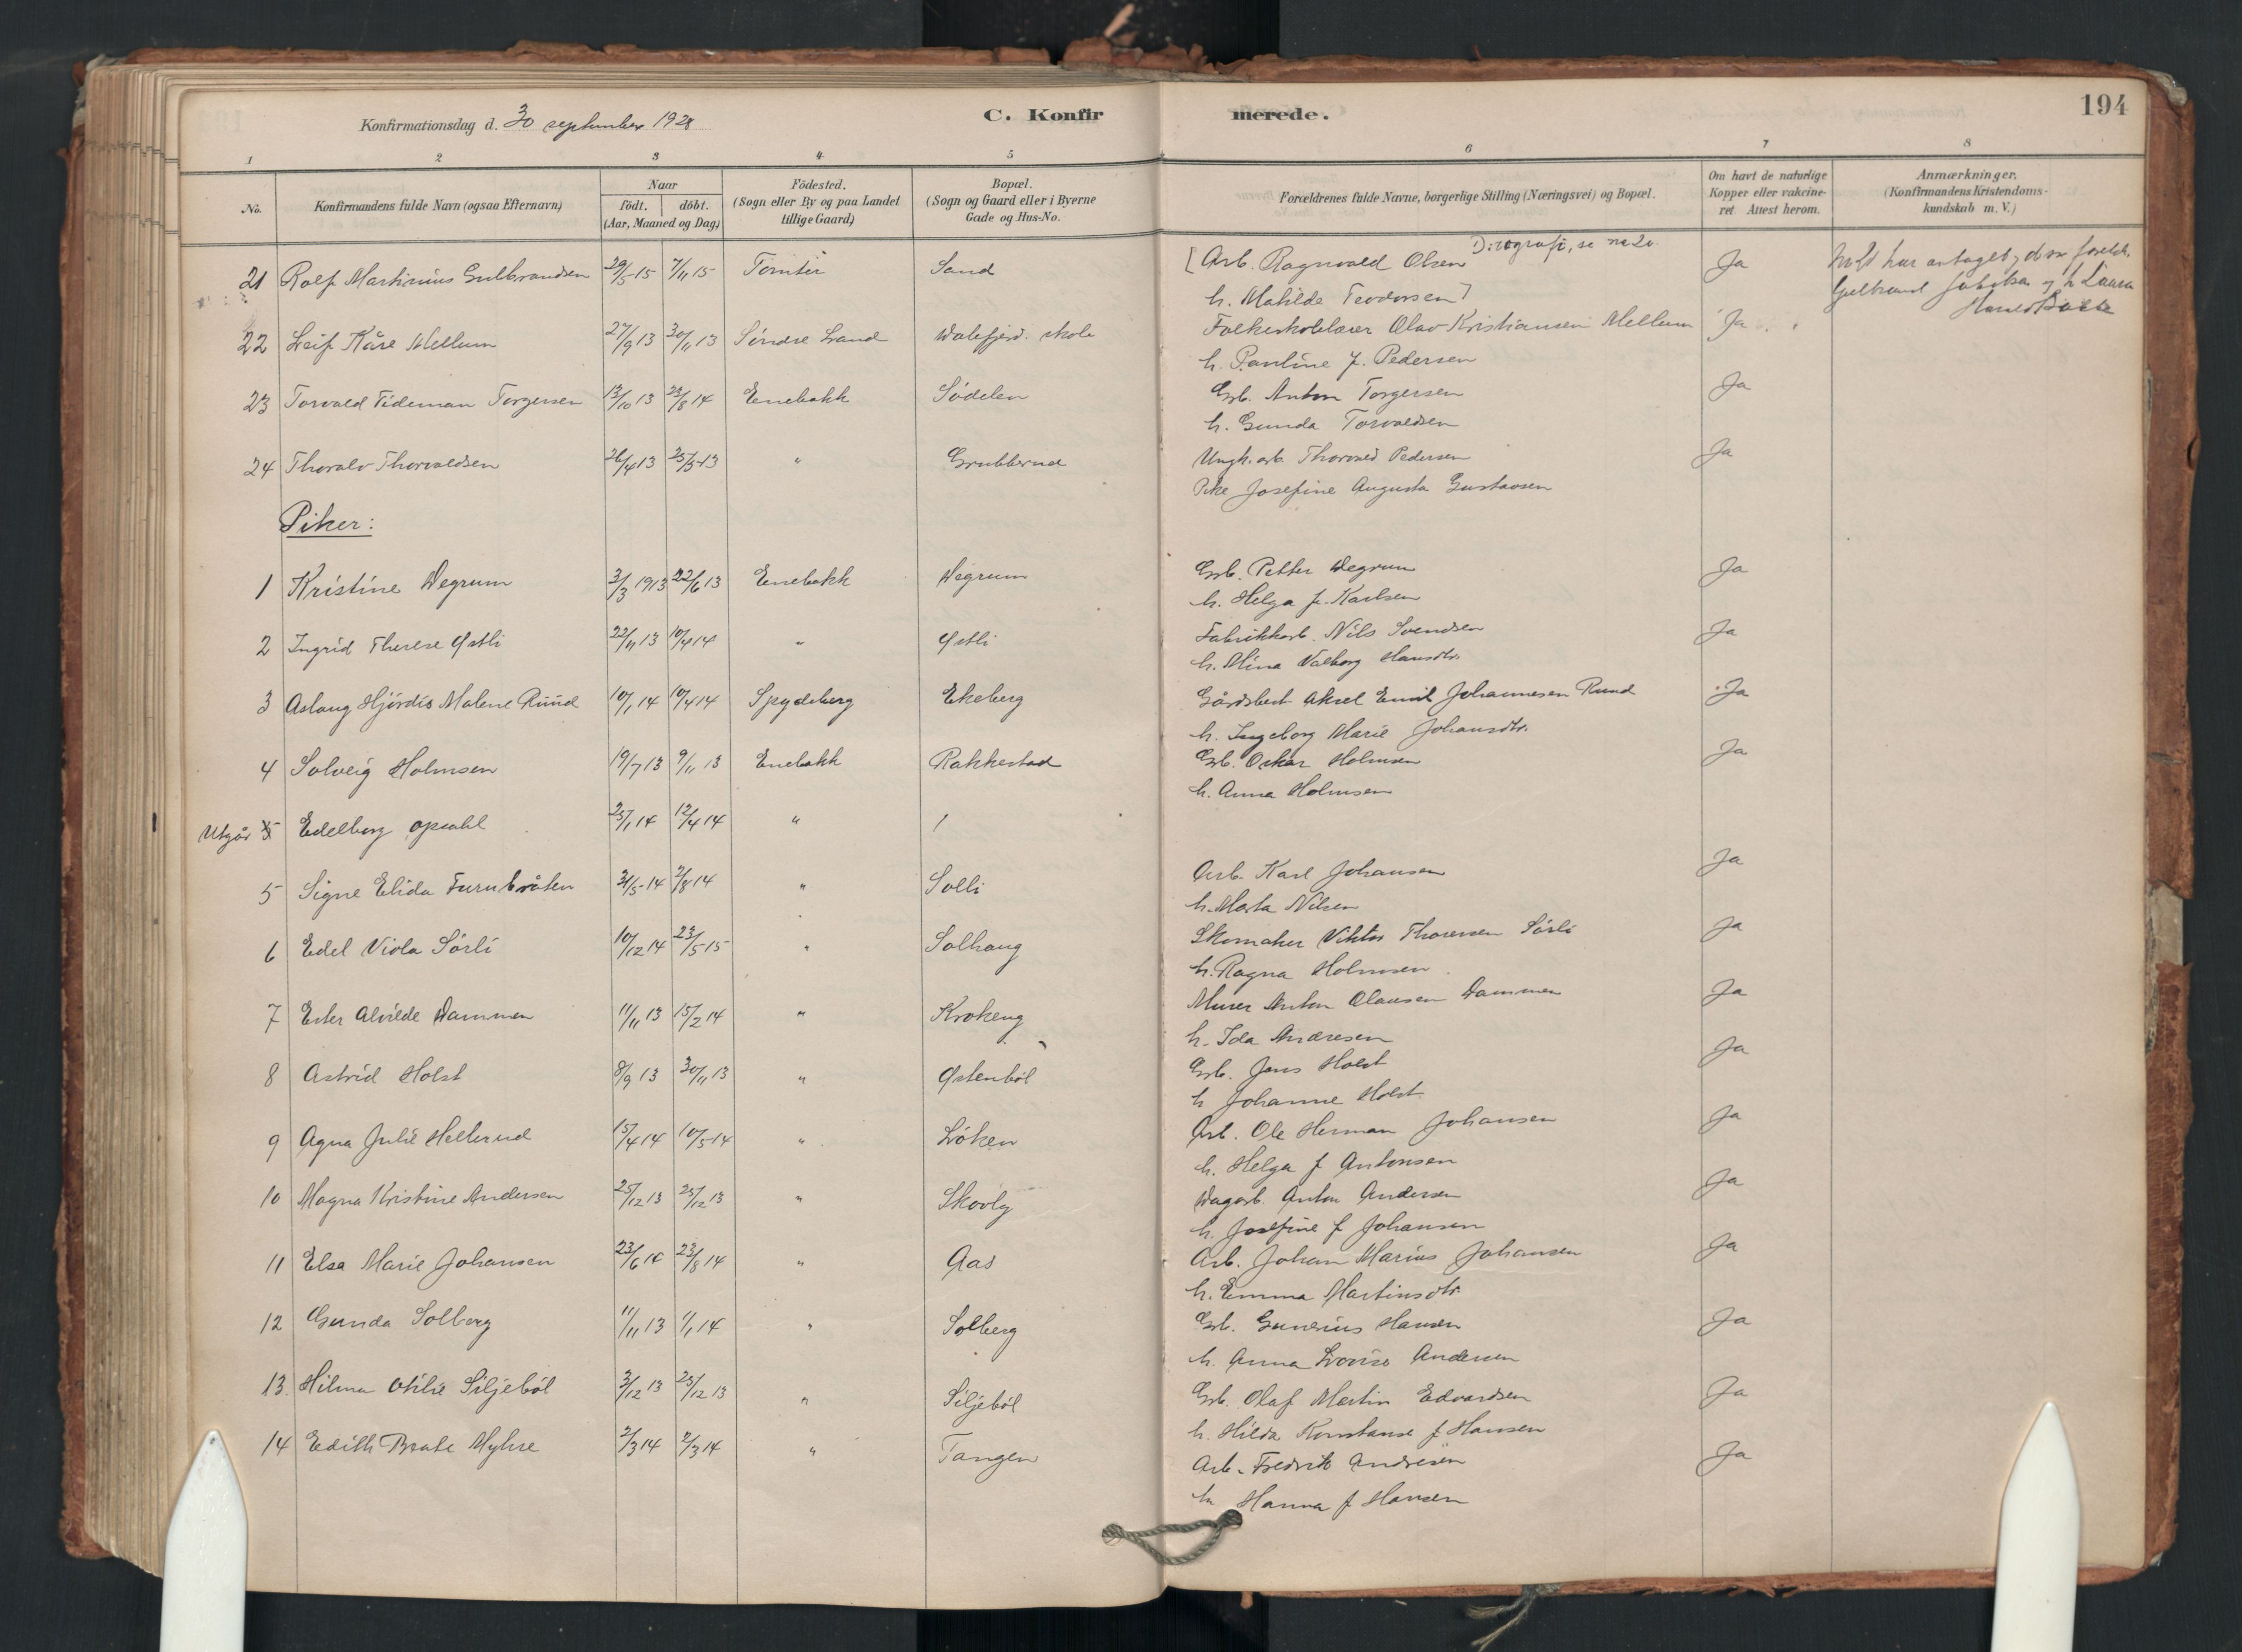 Konfirmationsdag d. 30 september 1928
C. Konfirmerede.
194
1 2 3 4 5 6 7 8
No.
Konfirmandens fulde Navn (ogsaa Efternavn)
Naar
födt. döbt.
(Aar, Maaned og Dag)
Födested.
(Sogn eller By og paa Landet
tillige Gaard)
Bopæl.
(Sogn og Gaard eller i Byerne
Gade og Hus-No.
Forældrenes fulde Navne, borgerlige Stilling (Næringsvei) og Bopæl.
Om havt de naturlige
Kopper eller vakcine-
ret. Attest herom.
Anmærkninger.
(Konfirmandens Kristendoms-
kundskab m. V.)
21 Rolf Martinius Gulbrandsen 29/5-15 7/11 15 Tomter Sand [Arb. Ragnvald Olsen Ja
h. Matilde Teodorsen]
22 Leif Kåre Mellum 27/9 13 30/11 13 Söndre Land Dalefjerd. skole Folkeskolelærer Olav Kristiansen Mellum Ja
h. Pauline f. Pedersen
23 Torvald Tideman Torgersen 13/10 13 23/8 14 Enebakk Södelen Grb. Anton Torgersen Ja
h. Gunda Torvaldsen
24 Thoralv Thorvaldsen 26/4 13 25/5-13 " Grubberud Ungk. arb. Thorvald Pedersen Ja
Pike Josefine Augusta Gustavsen
Piker:
1 Kristine Degrum 3/3 1913 22/6 13 Enebakk Degrum Grb. Petter Degrum Ja
h. Helga f. Karlsen
2 Ingrid Therese Østli 22/11 13 10/4 14 " Østli Fabrikkarb. Nils Svendsen Ja
h. Mina Valborg Hansdtr.
3 Aslaug Hjördis Malene Ruud 10/1 14 10/4 14 Spydeberg Ekeberg Gårdsbest. Aksel Emil Johannesen Ruud Ja
h. Ingeborg Marie Johansdtr.
4 Solveig Holmsen 19/7 13 9/11 13 Enebakk Rakkestad Grb. Oskar Holmsen Ja
h. Anna Holmsen
Utgår 5 Edelborg Opsahl 25/1 14 12/4 14 "
5 Signe Elida Furubråten 31/5-14 2/8 14 " Solli Arb. Karl Johansen Ja
h. Marta Nilsen
6 Edel Viola Sörli 10/12 14 23/5-15 " Solhaug Skomaker Viktor Thoresen Sörli Ja
h. Ragna Holmsen
7 Ester Alvilde Dammen 11/11 13 15/2 14 " Krokeng Murer Anton Olausen Dammen Ja
h. Ida Andresen
8 Astrid Holst 8/9 13 30/11 13 " Østenböl Grb. Jens Holst Ja
h Johanne Holst
9 Agna Julie Hellerud 15/4 14 10/5-14 " Löken Arb. Ole Herman Johansen Ja
h. Helga f Antonsen
10 Magna Kristine Andersen 25/12 13 25/12 13 " Skovly Dagarb. Anton Andersen Ja
h. Josefine f Johansen
11 Elsa Marie Johansen 23/6 14 23/8 14 " Aas Arb. Johan Marius Johansen Ja
h. Emma Martinsdtr
12 Gunda Solberg 11/11 13 1/1 14 " Solberg Grb. Gunerius Hansen Ja
h. Anna Lovise Andersen
13. Hilma Otilie Siljeböl 3/12 13 25/12 13 " Siljeböl Grb. Olaf Martin Edvardsen Ja
h. Hilda Konstanse f Hansen
14 Edith Beate Myhre 2/3 14 2/3 14 " Tangen Arb. Fredrik Andresen Ja
h Hanna f Hansen